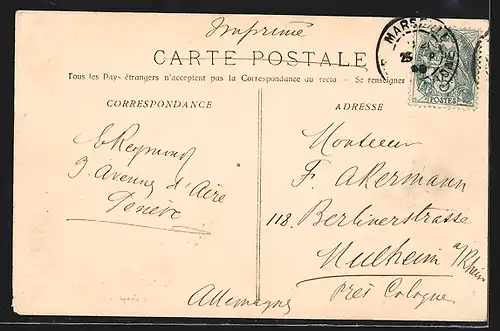 Imprimé
CARTE POSTALE
Tous les Pays étrangers n'acceptent pas la Correspondance au recto — Se renseigner
MARSEILLE
25
POSTES
CORRESPONDANCE
ADRESSE
E Reymond
9. Avenue d'Aïre
Genève
Monsieur
F. Akermann
118. Berlinerstrasse
Mulheim a/Rhein
près Cologne
Allemagne